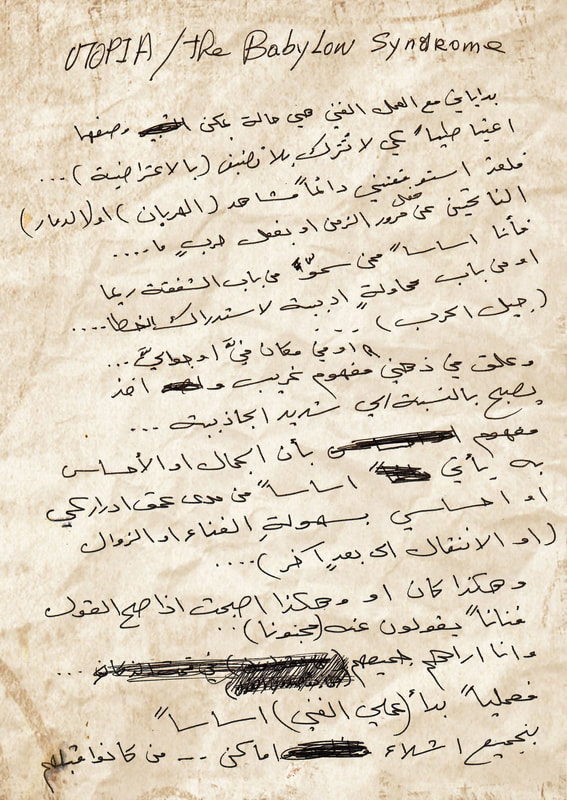 UTOPIA / The Babylon Syndrome
بداياتي مع العمل الفني هي حالة يمكن وصفها
كي لا تُترك بلا تصنيف (بالاعتراضية) ...
فلقد استوقفتني دائماً مشاهد (الهريان) او (الدمار)
الناتجين عن مرور الزمن او بفعل حربٍ ما ....
فأنا اساساً من باب الشفقة ربما
او من باب محاولةٍ ادبية لاستدراك الخطا ....
(جيل الحرب)
او في مكان ...
وعلق في ذهني مفهوم غريب اخذ
يصبح بالنسبة الي شديد الجاذبية ...
مفهوم بأن الجمال او الأحساس
به يأتي اساساً من مدى عمق ادراكي
او احساسي بسهولةِ الفناء او الزوال
(او الانتقال الى بعدٍ آخر) ....
وهكذا كان او وهكذا اصبحت اذا صح القول
فناناً يقولون عنه (مجنونا) ..
وانا اراهم جميعهم ...
فعملياً بدأ (عملي الفني) اساساً
بتجميع اشلاء اماكن .. من كانوا قبلهم